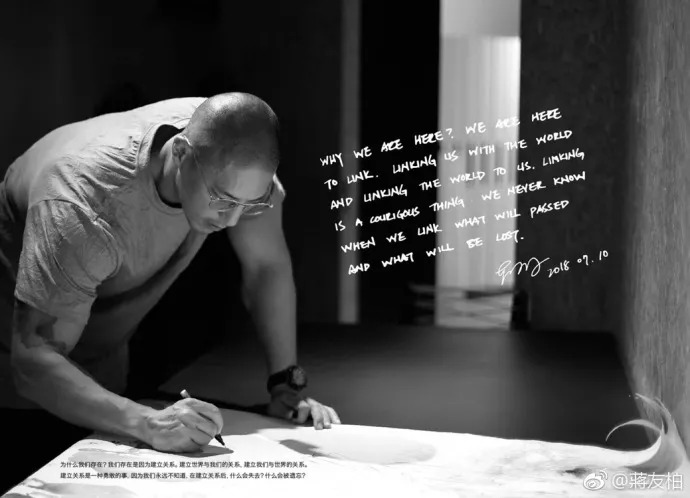 WHY WE ARE HERE? WE ARE HERE
TO LINK. LINKING US WITH THE WORLD
AND LINKING THE WORLD TO US. LINKING
IS A COURIGOUS THING WE NEVER KNOW
WHEN WE LINK WHAT WILL PASSED
AND WHAT WILL BE LOST.
2018 07.10
为什么我们存在？我们存在是因为建立关系。建立世界与我们的关系，建立我们与世界的关系。
建立关系是一种勇敢的事，因为我们永远不知道，在建立关系后，什么会失去？什么会被遗忘？
@蒋友柏